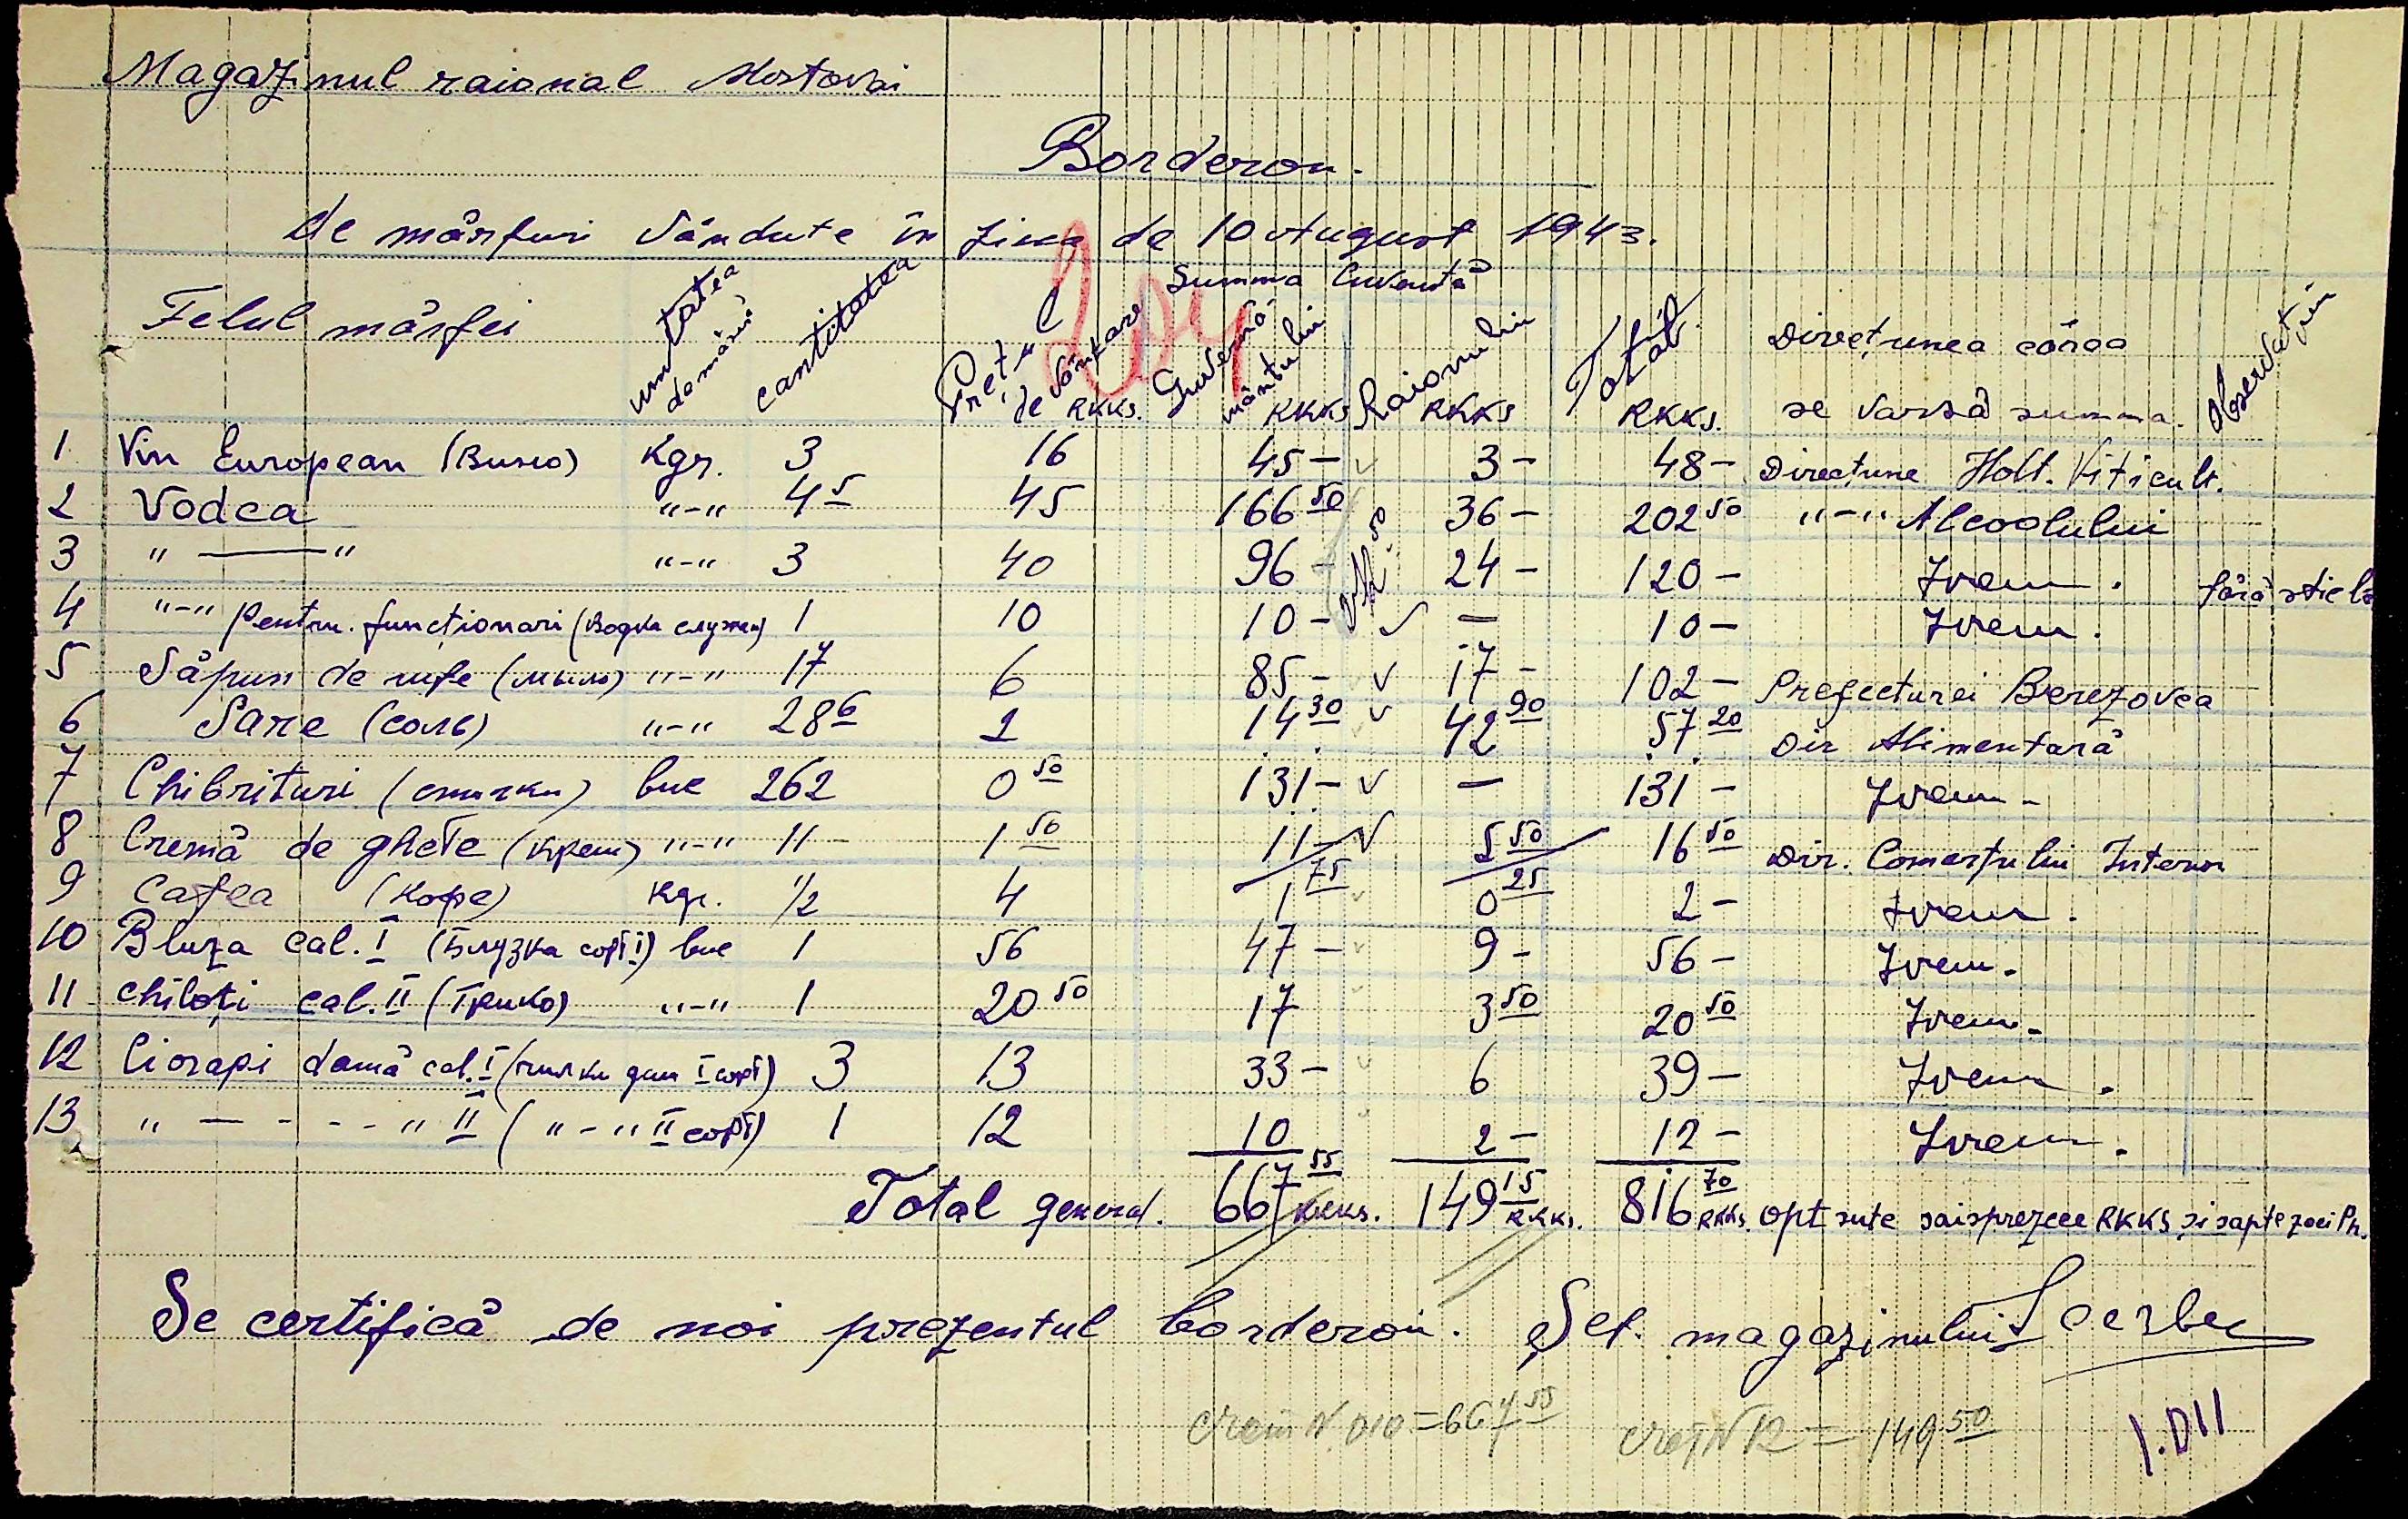 Magazinul raional Mostovoi
Borderou.
de mărfuri vândute în ziua de 10 August 1943.
Felul mărfei unitatea de măsură cantitatea Prețul de vânzare RKKS. Summa Cuvenită Guvernământului RKKS Raionului RKKS Total RKKS. Direcțunea cărea se varsă summa. Observațiuni
1 Vin European (Вино) Kgr. 3 16 45- 3- 48- Directune Hott. Viticult.
2 Vodca "-" 4 5 45 166 50 36- 202 50 "-" Alcoolului
3 " — " "-" 3 40 96- 24- 120- Idem. fără sticle
4 "-" Pentru funcționari (Водка служ) 1 10 10- - 10- Idem.
5 Săpun de rufe (мыло) "-" 17 6 85- 17- 102- Prefecturei Berezovca
6 Sare (соль) "-" 28 6 2 14 30 42 90 57 20 Dir Alimentară
7 Chibrituri (спички) buc 262 0 50 131- - 131- Idem-
8 Cremă de ghete (крем) "-" 11- 1 50 11- 5 50 16 50 Dir. Comerțului Intern
9 Cafea (кофе) Kgr. 1/2 4 1 75 0 25 2- Idem.
10 Bluza cal. I (Блузка сорт I) buc 1 56 47- 9- 56- Idem-
11 chiloți cal. II (Трико) "-" 1 20 50 17 3 50 20 50 Idem-
12 Ciorapi damă cal. I (чулки дам I сорт) 3 13 33- 6 39- Idem.
13 " - - - - " II ( "-" II сорт) 1 12 10 2- 12- Idem.
Total general. 667 55 RKKS. 149 15 RKKS. 816 70 RKKS. opt sute șaisprezece RKKS și șaptezeci Pf.
Se certifică de noi prezentul borderou. Șef. magazinului
N. 010 = 667 55 N 12 = 149 50